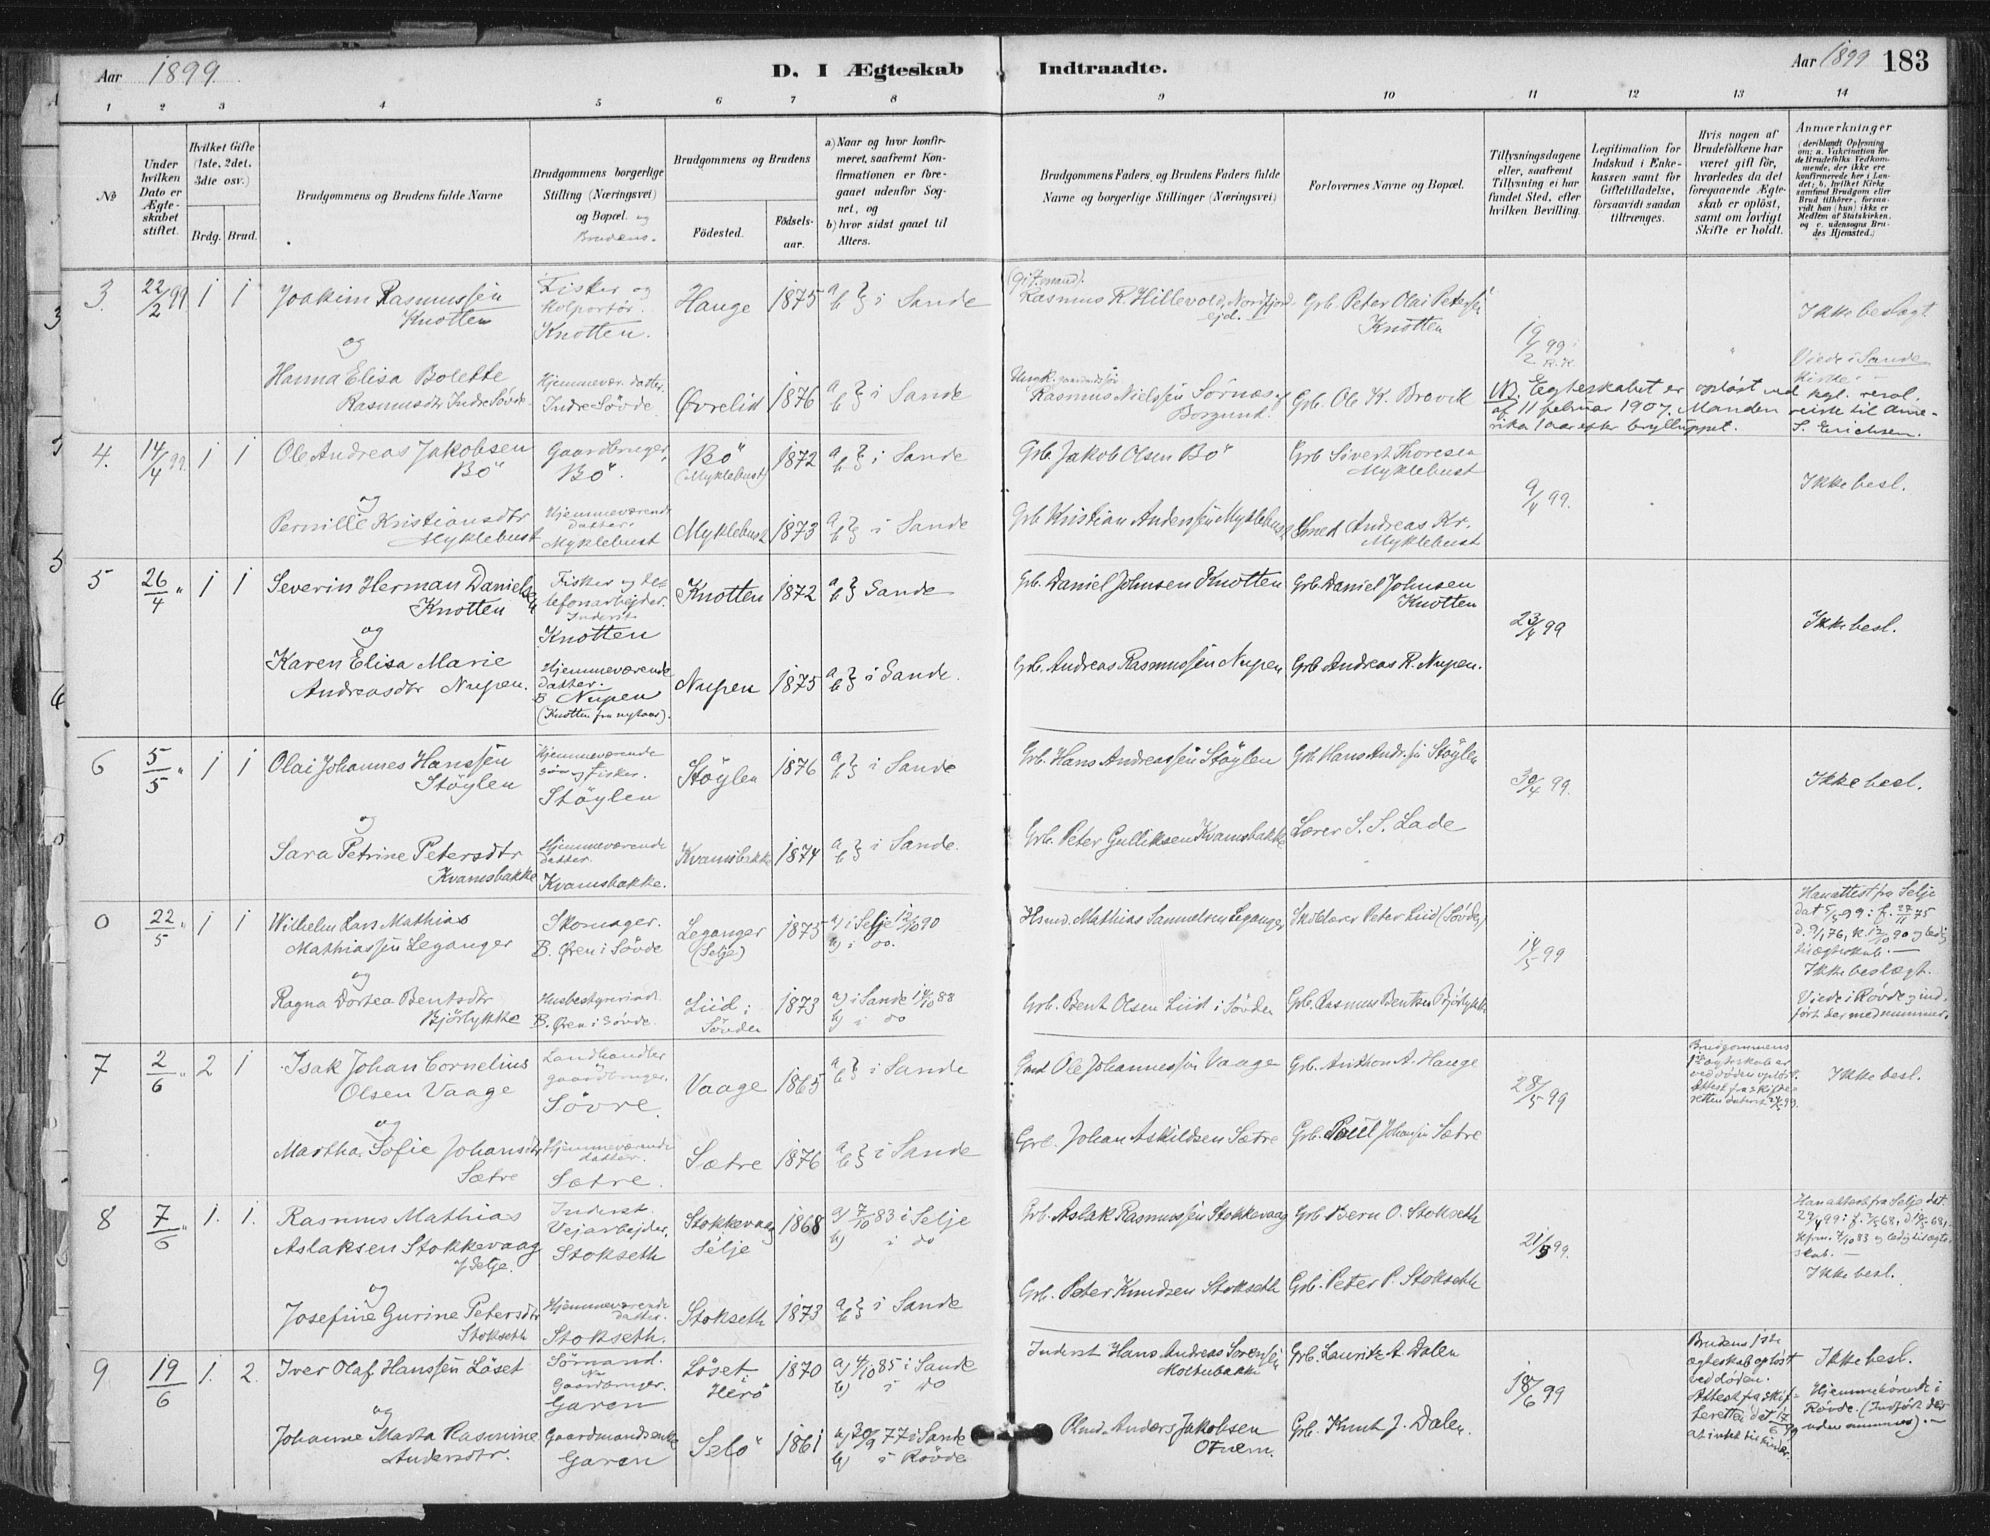 Aar 1899.
D. I Ægteskab Indtraadte.
Aar 1899 183
1 2 3 4 5 6 7 8 9 10 11 12 13 14
No
Under hvilken Dato er Ægteskabet stiftet.
Hvilket Gifte (1ste, 2det, 3die osv.)
Brdg. Brud.
Brudgommens og Brudens fulde Navne
Brudgommens borgerlige Stilling (Næringsvei) og Bopæl. og Brudens.
Brudgommens og Brudens
Fødested. Fødselsaar.
a) Naar og hvor konfirmeret, saafremt Konfirmationen er foregaaet udenfor Sognet, og
b) hvor sidst gaaet til Alters.
Brudgommens Faders, og Brudens Faders fulde Navne og borgerlige Stillinger (Næringsvei)
Forlovernes Navne og Bopæl.
Tillysningsdagene eller, saafremt Tillysning ei har fundet Sted, efter hvilken Bevilling.
Legitimation for Indskud i Enkekassen samt for Giftetilladelse, forsaavidt saadan tiltrænges.
Hvis nogen af Brudefolkene har været gift før, hvorledes da det foregaaende Ægteskab er opløst, samt om lovligt Skifte er holdt.
Anmærkninger (deriblandt Oplysning om: a. Vakcination for de Brudefolks Vedkommende, der ikke ere konfirmerede her i Landet; b. hvilket Kirkesamfund Brudgom eller Brud tilhører, forsaavidt han (hun) ikke er Medlem af Statskirken, og c. udensogns Brudes Hjemsted.)
3. 22/2 99 1 1 Joakim Rasmussen Knotten
Fisker og Kolportør. Knotten.
Hauge 1875 a b } i Sande
(Gift mand). Rasmus R. Hillevold, Nordfjordejd.
Grb. Peter Olai Petersen Knotten
19/2 99
Ikke beslægt.
Viede i Sande Kirke.
og
Hanna Elisa Bolette Rasmusdtr Indre Søvde
Hjemmevær. datter. Indre Søvde.
Øvrelid 1876 a b } i Sande
Rasmus Nielssen Sørnæs, Borgund.
Grb. Ole K. Brevik
NB. Egteskabet er opløst ved kgl. resol. af 11 februar 1907. Manden reiste til Amerika 1 aar efter brylluppet. S. Erichsen.
4. 14/4 99. 1 1 Ole Andreas Jakobsen Bö
Gaardbruger, Bö.
Bö (Myklebust) 1872 a b } i Sande
Grb. Jakob Olsen Bö
Grb Sivert Thoresen Myklebust
9/4 99.
Ikke besl.
og
Pernille Kristiansdtr Myklebust
Hjemmeværende datter. Myklebust
Myklebust 1873 a b } i Sande
Grb Kristian Anderssen Myklebust
Smed Andreas Kr. Myklebust
5 26/4 " 1 1 Severin Herman Danielsen Knotten
Fisker og telefonarbejder. Inderst Knotten
Knotten 1872 a b } Sande
Grb. Daniel Johnsen Knotten
Grb. Daniel Johnsen Knotten
23/4 99
Ikke besl.
og
Karen Elisa Marie Andreasdtr Nupen.
Hjemmeværende datter. B. Nupen (Knotten fra nytaar).
Nupen 1875 a b } i Sande.
Grb. Andreas Rasmussen Nupen
Grb Andreas R. Nupen.
6 5/5 " 1 1 Olai Johannes Hanssen Stöylen
Hjemmeværende søn og Fisker. Stöylen
Stöylen 1876 a b } i Sande
Grb. Hans Andreassen Stöylen
Grb Hans Andr.sen Stöylen
30/4 99.
Ikke besl.
og
Sara Petrine Petersdtr Kvamsbakke
Hjemmeværende datter. Kvamsbakke.
Kvamsbakke 1874 a b } i Sande.
Grb. Peter Gulliksen Kvamsbakke
Lærer S. S. Lade
0 22/5 " 1 1 Wilhelm Lars Mathias Mathiassen Leganger
Skomager. B. Øren i Søvde
Leganger (Selje) 1875 a) i Selje 12/10 90 b) i do.
Hsmd. Mathias Samuelsen Leganger
Skolelærer Peter Liid (Søvde)
14/5 99
Han attest fra Selje dat 5/5 99: f. 27/11 75 d. 9/1 76, k. 12/10 90 og ledig til ægteskab. —
Ikke beslægt.
Viede i Røvde og indført der med nummer.
og
Ragna Dortea Bentsdtr Bjørlykke
Husbestyrerinde. B. Øren i Søvde.
Liid i Søvden 1873 a) i Sande 14/10 88 b) i do
Grb. Bent Olsen Liid i Søvden
Grb. Rasmus Bentsen Bjørlykke
7 2/6 " 2 1 Isak Johan Cornelius Olsen Vaage
Landhandler gaardbruger. Søvre.
Vaage 1865 a b } i Sande
Ole Johannessen Vaage
Grb. Anthon A. Hauge
28/5 99
Brudgommens 1. ægteskab er ved døden opløst. Attest fra skifteretten dateret 99.
Ikke besl.
og
Martha Sofie Johansdtr Sætre
Hjemmeværende datter. Sætre.
Sætre 1876 a b } i Sande
Grb. Johan Askildsen Sætre
Grb. Paul Johansen Sætre
8 7/6 " 1. 1. Rasmus Mathias Aslaksen Stokkevaag af Selje.
Inderst. Vejarbejder. Stokseth
Stokkevaag Selje 1868 a) 7/10 83 i Selje b) i do
Grb. Aslak Rasmussen Stokkevaag
Grb Bern O. Stokseth
21/5 99.
Han attest fra Selje dat 29/4 99: f. 68, d. 68, kfm. 7/10 83 og ledig til ægteskab. —
Ikke besl.
og
Josefine Gurine Petersdtr Stokseth
Hjemmeværende datter. Stokseth.
Stokseth 1873 a b } i Sande
Grb. Peter Knudsen Stokseth
Grb. Peter P. Stokseth
9 19/6 1. 2. Iver Olaf Hanssen Löset
Gaardbruger. Garen
Löset i Herö 1870 a) 4/10 85 i Sande b) i do
Inderst Hans Andreas Sørensen Moltubakke
Grb. Lauritz A. Dalen
18/6 99
Brudens 1ste ægteskab opløst ved døden. Attest fra skifteretten dat 17/6 99
Ikke besl.
Hjemmehørende i Røvde. (Indført der uden nummer). —
og
Johanne Marta Rasmine Andersdtr.
Gaardmandsenke Garen
Selö 1861 a) 30/9 77 i Sande b) i Røvde
Anders Jakobsen
Grb. Knut J. Dalen.